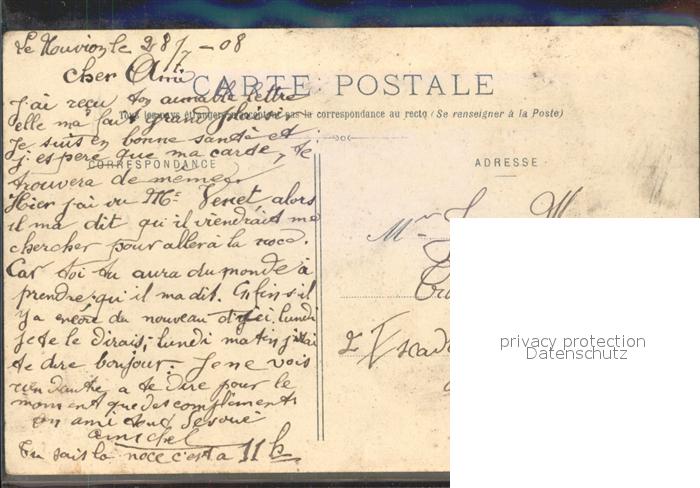 Le Nouvion le 28/7 - 08
cher Ami
CARTE POSTALE
Tous les pays étrangers n'acceptent pas la correspondance au recto (Se renseigner à la Poste)
J'ai reçu ton aimable lettre
elle ma fait grand plaisir
Je suis en bonne santé et
j'espere que ma carte, te
CORRESPONDANCE
ADRESSE
trouvera de meme
Hier j'ai vu Mr Venet alors
il ma dit qu'il viendrait me
chercher pour aller à la noce.
Car toi tu aura du monde à
prendre, qu'il ma dit. Enfin s'il
y a encore du nouveau d'ici, lundi
je te le dirais, lundi matin j'irai
te dire bonjour. Je ne vois
rien d'autre a te dire pour le
moment que des compliments
ton ami tout devoué
Tu sais la noce c'est a 11 h
Mr
2e Escad
privacy protection
Datenschutz